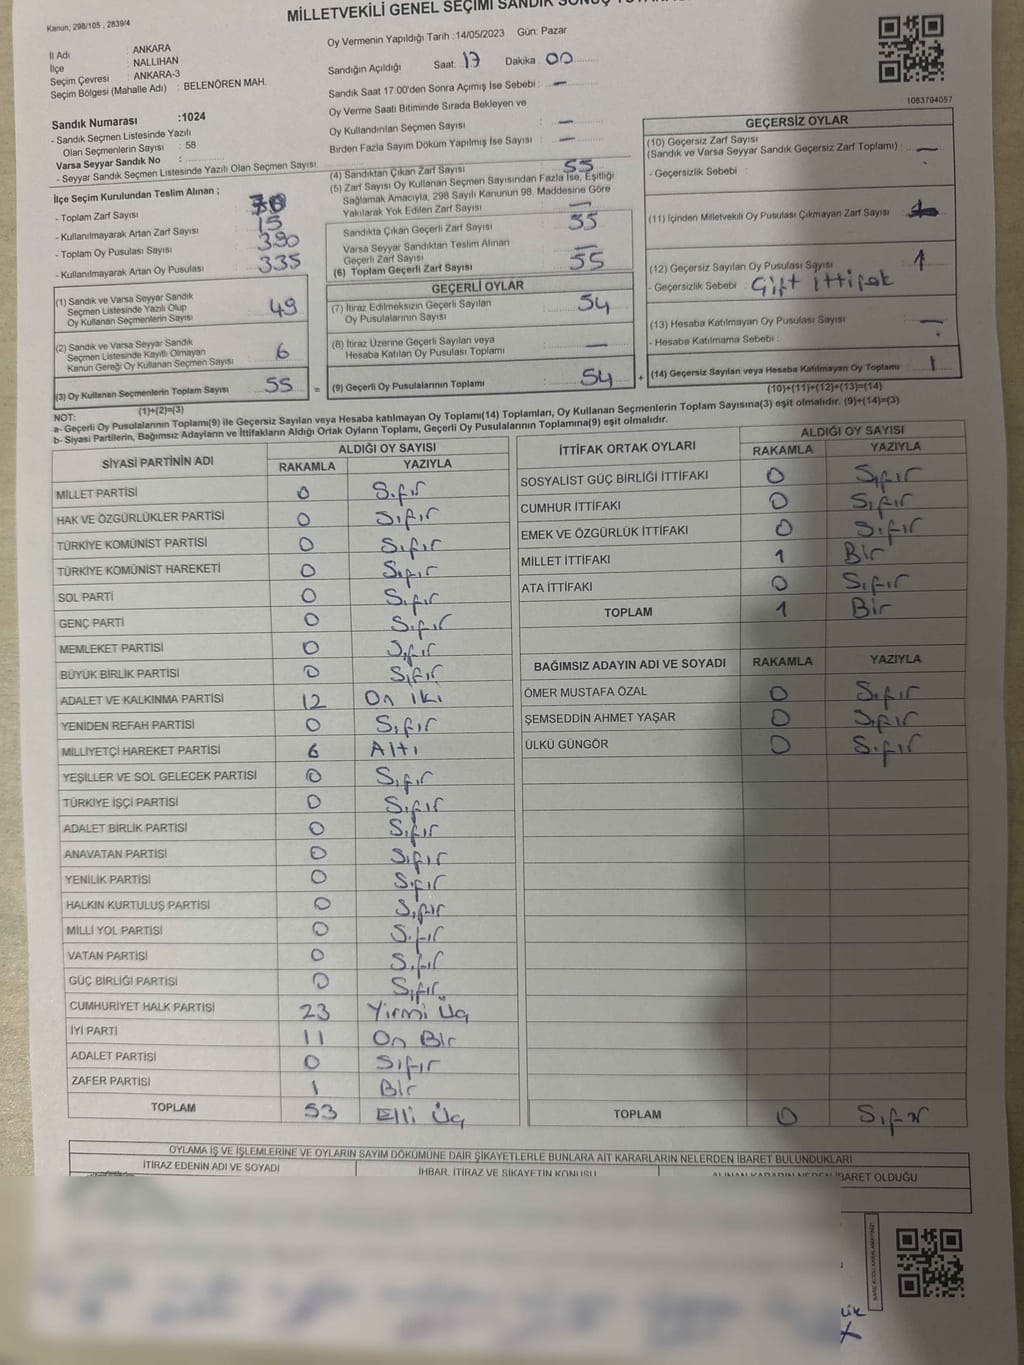 MİLLETVEKİLİ GENEL SEÇİMİ SANDIK SONUÇ
Kanun; 298/105 , 2839/4
İl Adı : ANKARA
İlçe : NALLIHAN
Seçim Çevresi : ANKARA-3
Seçim Bölgesi (Mahalle Adı) : BELENÖREN MAH.
Oy Vermenin Yapıldığı Tarih :14/05/2023 Gün: Pazar
Sandığın Açıldığı Saat: 17 Dakika 00
Sandık Saat 17.00'den Sonra Açımış İse Sebebi : —
Oy Verme Saati Bitiminde Sırada Bekleyen ve
Oy Kullandırılan Seçmen Sayısı : —
Birden Fazla Sayım Döküm Yapılmış İse Sayısı : —
1083794057
Sandık Numarası :1024
- Sandık Seçmen Listesinde Yazılı
Olan Seçmenlerin Sayısı : 58
Varsa Seyyar Sandık No :
- Seyyar Sandık Seçmen Listesinde Yazılı Olan Seçmen Sayısı:
İlçe Seçim Kurulundan Teslim Alınan ;
- Toplam Zarf Sayısı :
- Kullanılmayarak Artan Zarf Sayısı : 15
- Toplam Oy Pusulası Sayısı : 390
- Kullanılmayarak Artan Oy Pusulası : 335
(1) Sandık ve Varsa Seyyar Sandık
Seçmen Listesinde Yazılı Olup
Oy Kullanan Seçmenlerin Sayısı : 49
(2) Sandık ve Varsa Seyyar Sandık
Seçmen Listesinde Kayıtlı Olmayan
Kanun Gereği Oy Kullanan Seçmen Sayısı : 6
(3) Oy Kullanan Seçmenlerin Toplam Sayısı : 55
(1)+(2)=(3)
(4) Sandıktan Çıkan Zarf Sayısı : 55
(5) Zarf Sayısı Oy Kullanan Seçmen Sayısından Fazla İse, Eşitliği
Sağlamak Amacıyla, 298 Sayılı Kanunun 98. Maddesine Göre
Yakılarak Yok Edilen Zarf Sayısı : —
Sandıkta Çıkan Geçerli Zarf Sayısı : 55
Varsa Seyyar Sandıktan Teslim Alınan
Geçerli Zarf Sayısı : —
(6) Toplam Geçerli Zarf Sayısı : 55
GEÇERLİ OYLAR
(7) İtiraz Edilmeksizin Geçerli Sayılan
Oy Pusulalarının Sayısı : 54
(8) İtiraz Üzerine Geçerli Sayılan veya
Hesaba Katılan Oy Pusulası Toplamı : —
= (9) Geçerli Oy Pusulalarının Toplamı : 54 +
GEÇERSİZ OYLAR
(10) Geçersiz Zarf Sayısı
(Sandık ve Varsa Seyyar Sandık Geçersiz Zarf Toplamı) : —
- Geçersizlik Sebebi :
(11) İçinden Milletvekili Oy Pusulası Çıkmayan Zarf Sayısı :
(12) Geçersiz Sayılan Oy Pusulası Sayısı : 1
- Geçersizlik Sebebi : Çift ittifak
(13) Hesaba Katılmayan Oy Pusulası Sayısı : —
- Hesaba Katılmama Sebebi :
(14) Geçersiz Sayılan veya Hesaba Katılmayan Oy Toplamı : 1
(10)+(11)+(12)+(13)=(14)
NOT:
a- Geçerli Oy Pusulalarının Toplamı(9) ile Geçersiz Sayılan veya Hesaba katılmayan Oy Toplamı(14) Toplamları, Oy Kullanan Seçmenlerin Toplam Sayısına(3) eşit olmalıdır. (9)+(14)=(3)
b- Siyasi Partilerin, Bağımsız Adayların ve İttifakların Aldığı Ortak Oyların Toplamı, Geçerli Oy Pusulalarının Toplamına(9) eşit olmalıdır.
SİYASİ PARTİNİN ADI ALDIĞI OY SAYISI
RAKAMLA YAZIYLA
MİLLET PARTİSİ 0 Sıfır
HAK VE ÖZGÜRLÜKLER PARTİSİ 0 Sıfır
TÜRKİYE KOMÜNİST PARTİSİ 0 Sıfır
TÜRKİYE KOMÜNİST HAREKETİ 0 Sıfır
SOL PARTİ 0 Sıfır
GENÇ PARTİ 0 Sıfır
MEMLEKET PARTİSİ 0 Sıfır
BÜYÜK BİRLİK PARTİSİ 0 Sıfır
ADALET VE KALKINMA PARTİSİ 12 On iki
YENİDEN REFAH PARTİSİ 0 Sıfır
MİLLİYETÇİ HAREKET PARTİSİ 6 Altı
YEŞİLLER VE SOL GELECEK PARTİSİ 0 Sıfır
TÜRKİYE İŞÇİ PARTİSİ 0 Sıfır
ADALET BİRLİK PARTİSİ 0 Sıfır
ANAVATAN PARTİSİ 0 Sıfır
YENİLİK PARTİSİ 0 Sıfır
HALKIN KURTULUŞ PARTİSİ 0 Sıfır
MİLLİ YOL PARTİSİ 0 Sıfır
VATAN PARTİSİ 0 Sıfır
GÜÇ BİRLİĞİ PARTİSİ 0 Sıfır
CUMHURİYET HALK PARTİSİ 23 Yirmi Üç
İYİ PARTİ 11 On Bir
ADALET PARTİSİ 0 Sıfır
ZAFER PARTİSİ 1 Bir
TOPLAM 53 Elli Üç
İTTİFAK ORTAK OYLARI ALDIĞI OY SAYISI
RAKAMLA YAZIYLA
SOSYALİST GÜÇ BİRLİĞİ İTTİFAKI 0 Sıfır
CUMHUR İTTİFAKI 0 Sıfır
EMEK VE ÖZGÜRLÜK İTTİFAKI 0 Sıfır
MİLLET İTTİFAKI 1 Bir
ATA İTTİFAKI 0 Sıfır
TOPLAM 1 Bir
BAĞIMSIZ ADAYIN ADI VE SOYADI RAKAMLA YAZIYLA
ÖMER MUSTAFA ÖZAL 0 Sıfır
ŞEMSEDDİN AHMET YAŞAR 0 Sıfır
ÜLKÜ GÜNGÖR 0 Sıfır
TOPLAM 0 Sıfır
OYLAMA İŞ VE İŞLEMLERİNE VE OYLARIN SAYIM DÖKÜMÜNE DAİR ŞİKAYETLERLE BUNLARA AİT KARARLARIN NELERDEN İBARET BULUNDUKLARI
İTİRAZ EDENİN ADI VE SOYADI İHBAR, İTİRAZ VE ŞİKAYETİN KONUSU ALINAN KARARIN NEDEN İBARET OLDUĞU